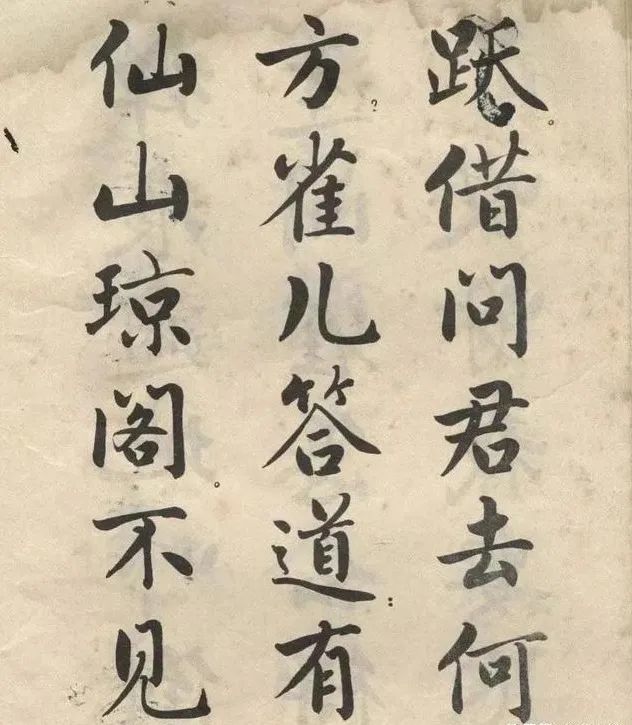 跃。借问君去何
方?雀儿答道:有
仙山琼阁。不见